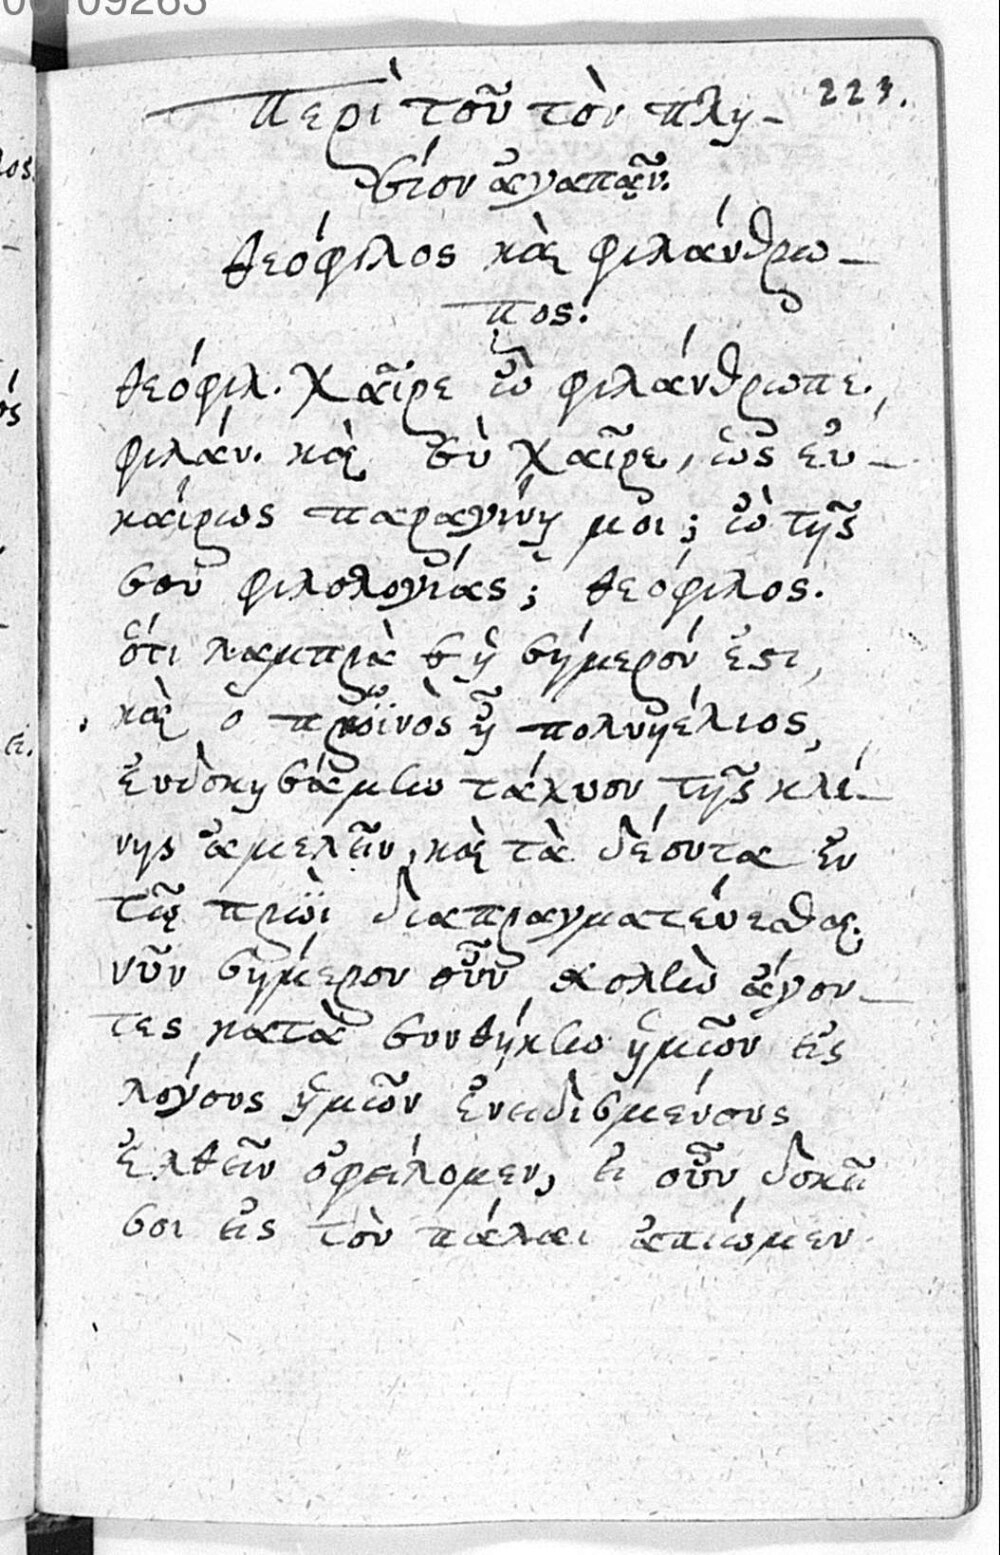 00109263
223.
Περὶ τοῦ τὸν πλη-
σίον ἀγαπᾷν.
Θεόφιλος καὶ φιλάνθρω-
πος.
Θεόφιλ. Χαῖρε ὦ φιλάνθρωπε.
φιλάν. καὶ σὺ χαῖρε, ὡς εὐ-
καίρως παραγίνῃ μοι; ὢ τῆς
σοῦ φιλολογίας; Θεόφιλος.
ὅτι λαμπρὰ ἡ σήμερόν ἐστι,
καὶ ὁ πρωϊνὸς ἢ πολυηέλιος,
ἐυδοκησάμην τάχιον τῆς κλί-
νης ἀμελεῖν, καὶ τὰ δέοντα ἐν
τῷ πρωῒ διαπραγματέυεσθαι.
νῦν σήμερον οὖν σχολὴν ἄγον-
τες κατὰ συνθήκην ἡμῶν εἰς
λόγους ἡμῶν
ἐλθεῖν ὀφείλομεν, εἰ οὖν δοκεῖ
σοι εἰς τὸν πάλαι ἀπίωμεν